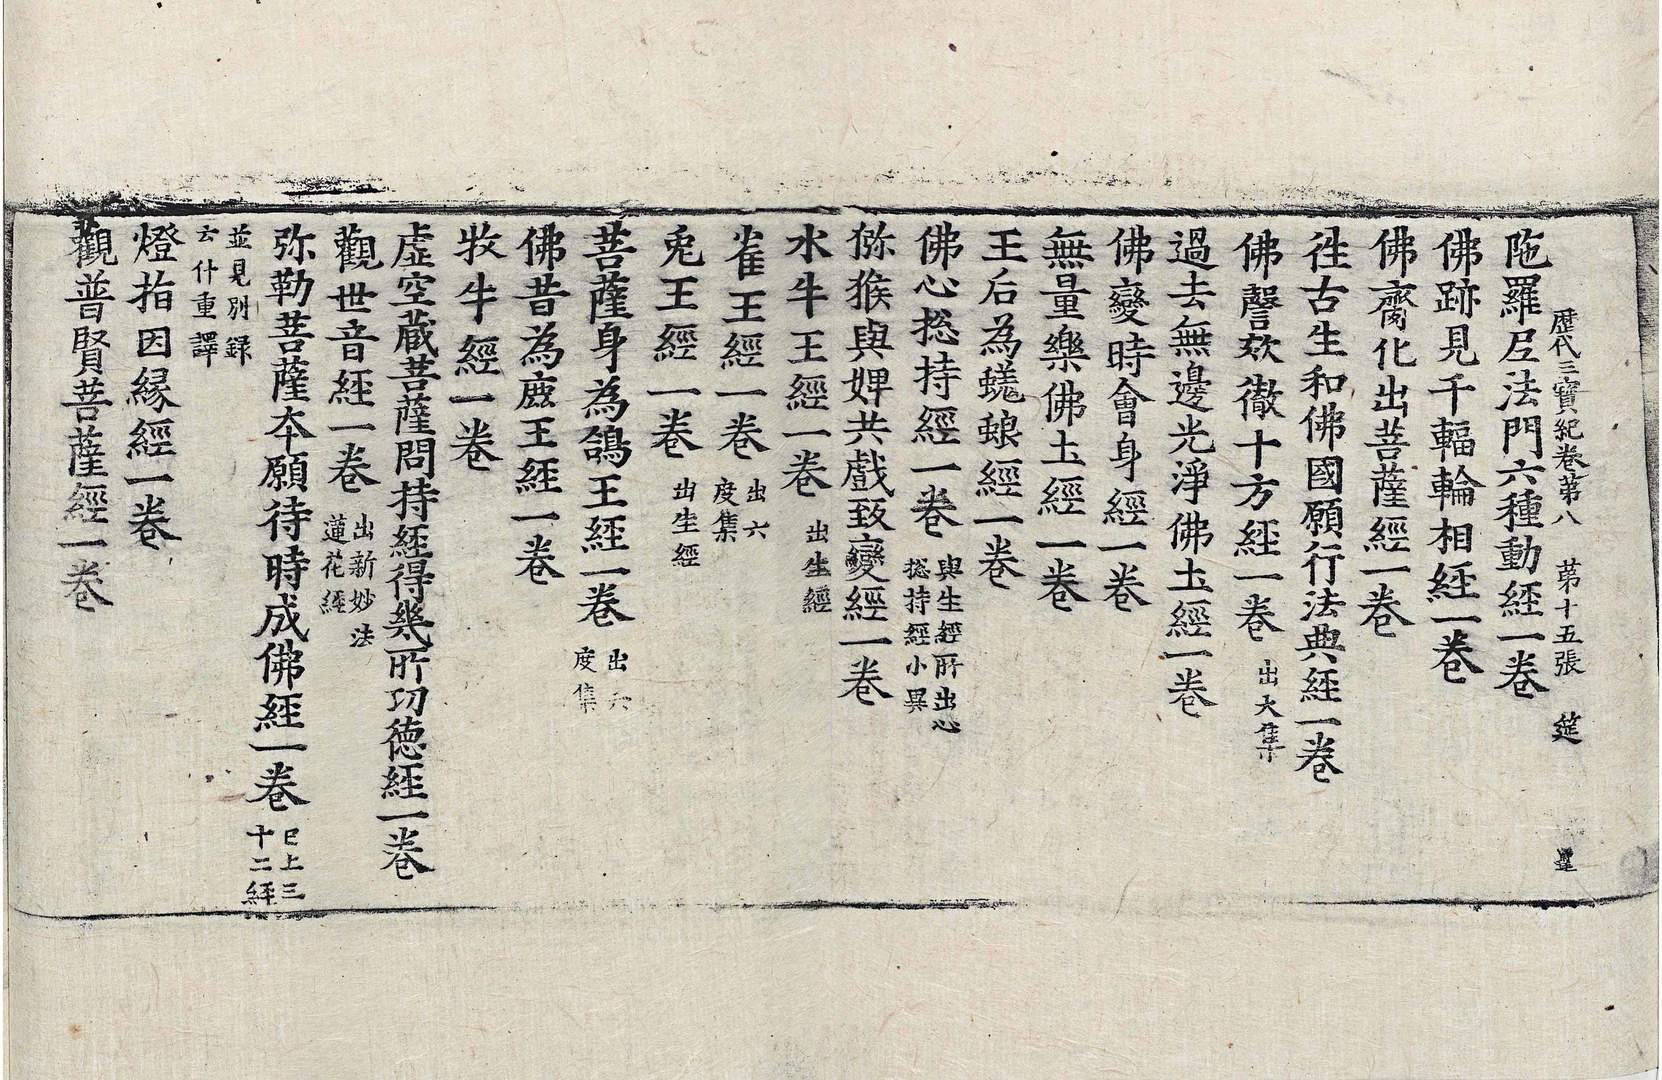 歷代三寶紀卷第八 第十五張 筵
陁羅尼法門六種動經一卷
佛跡見千輻輪相經一卷
佛齊化出菩薩經一卷
往古生和佛國願行法典經一卷
佛謦欬徹十方經一卷 出大集
過去無邊光淨佛土經一卷
佛變時會身經一卷
無量樂佛土經一卷
王后為蜣蜋經一卷
佛心捴持經一卷 與生經所出心
捴持經小異
猕猴與婢共戲致變經一卷
水牛王經一卷 出生經
雀王經一卷 出六
度集
兎王經一卷 出生經
菩薩身為鴿王經一卷 出六
度集
佛昔為鹿王經一卷
牧牛經一卷
虛空蔵菩薩問持經得幾所功德經一卷
觀世音經一卷 出新妙法
蓮花經
弥勒菩薩夲願待時成佛經一卷 巳上三
十二經
並見別録
云什重譯
燈指因緣經一卷
觀普賢菩薩經一卷